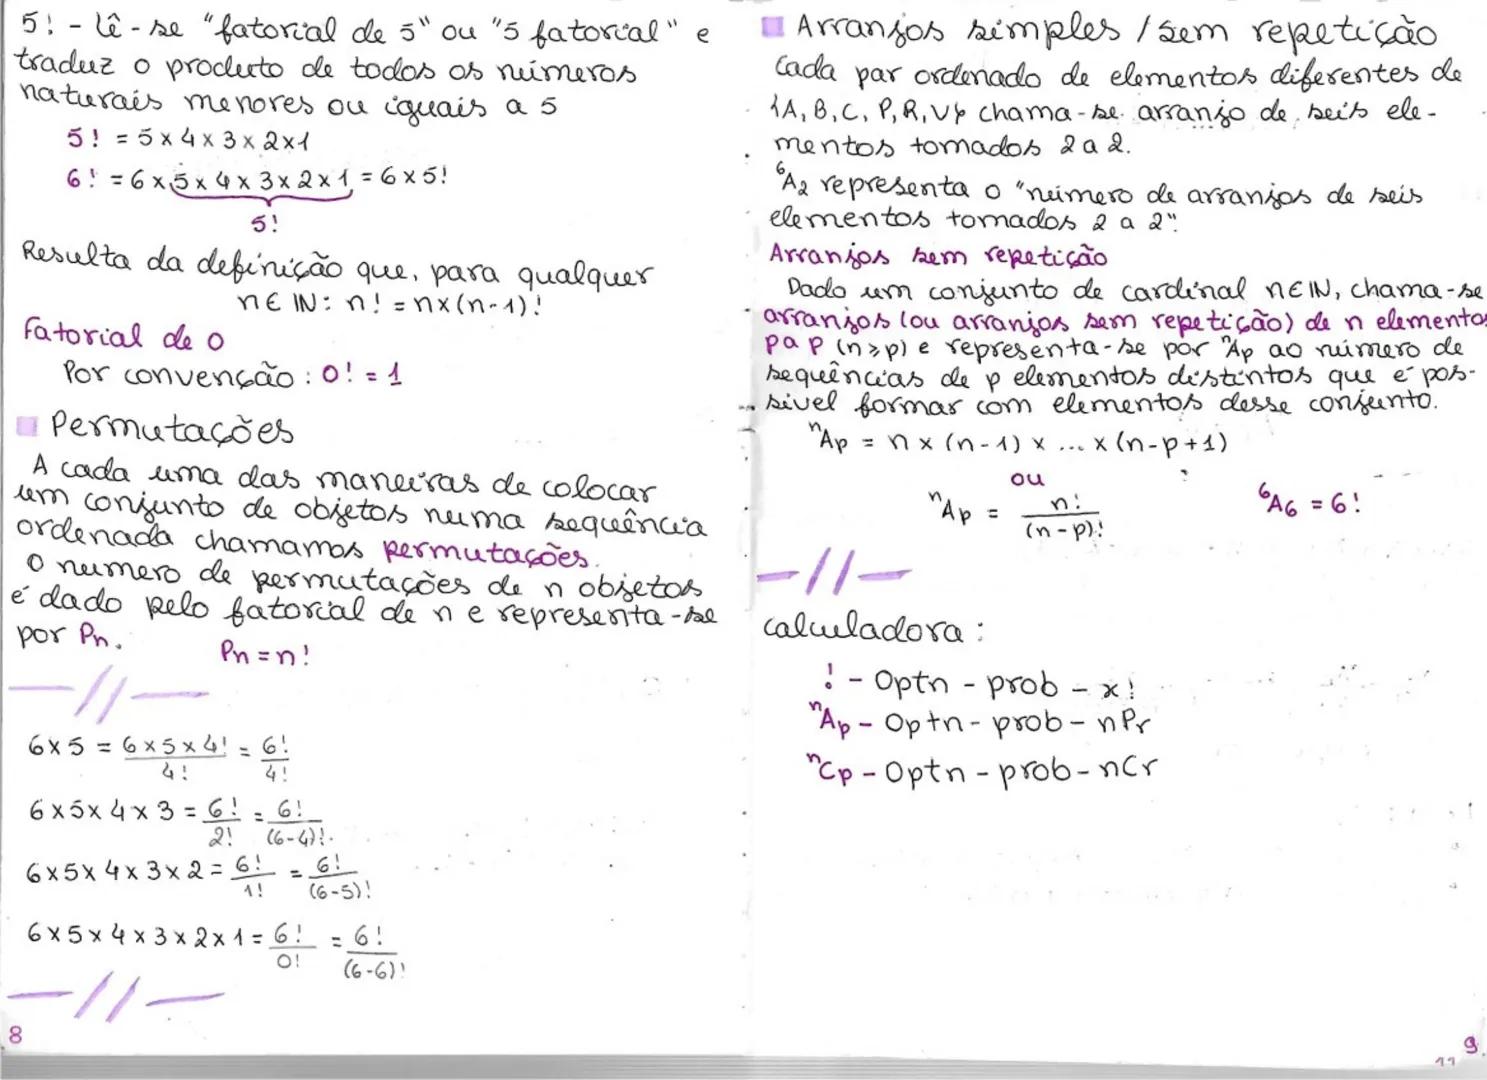 5! - lê-se "fatorial de 5" ou "5 fatorial" e
traduz o produto de todos os números
naturais menores ou iguais a 5
5! = 5 x 4 x 3 x 2 x 1
6! = 6 x 5 x 4 x 3 x 2 x 1 = 6 x 5!
5!
Resulta da definição que, para qualquer
n ∈ IN: n! = n x (n-1)!
Fatorial de 0
Por convenção: 0! = 1
Permutações
A cada uma das maneiras de colocar
um conjunto de objetos numa sequência
ordenada chamamos permutações.
O numero de permutações de n objetos
é dado pelo fatorial de n e representa-se
por Pn.
Pn = n!
-//-
6 x 5 = 6 x 5 x 4! / 4! = 6! / 4!
6 x 5 x 4 x 3 = 6! / 2! = 6! / (6-4)!
6 x 5 x 4 x 3 x 2 = 6! / 1! = 6! / (6-5)!
6 x 5 x 4 x 3 x 2 x 1 = 6! / 0! = 6! / (6-6)!
-//-
8
Arranjos simples / sem repetição
Cada par ordenado de elementos diferentes de
{A, B, C, P, R, V} chama-se arranjo de seis ele-
mentos tomados 2 a 2.
⁶A₂ representa o "número de arranjos de seis
elementos tomados 2 a 2".
Arranjos sem repetição
Dado um conjunto de cardinal n ∈ IN, chama-se
arranjos (ou arranjos sem repetição) de n elementos
p a p (n ≥ p) e representa-se por ⁿAp ao número de
sequências de p elementos distintos que é pos-
sível formar com elementos desse conjunto.
ⁿAp = n x (n-1) x ... x (n-p+1)
ou
ⁿAp = n! / (n-p)!
⁶A₆ = 6!
-//-
calculadora:
! - Optn - prob - x!
ⁿAp - Optn - prob - nPr
ⁿCp - Optn - prob - nCr
9
11